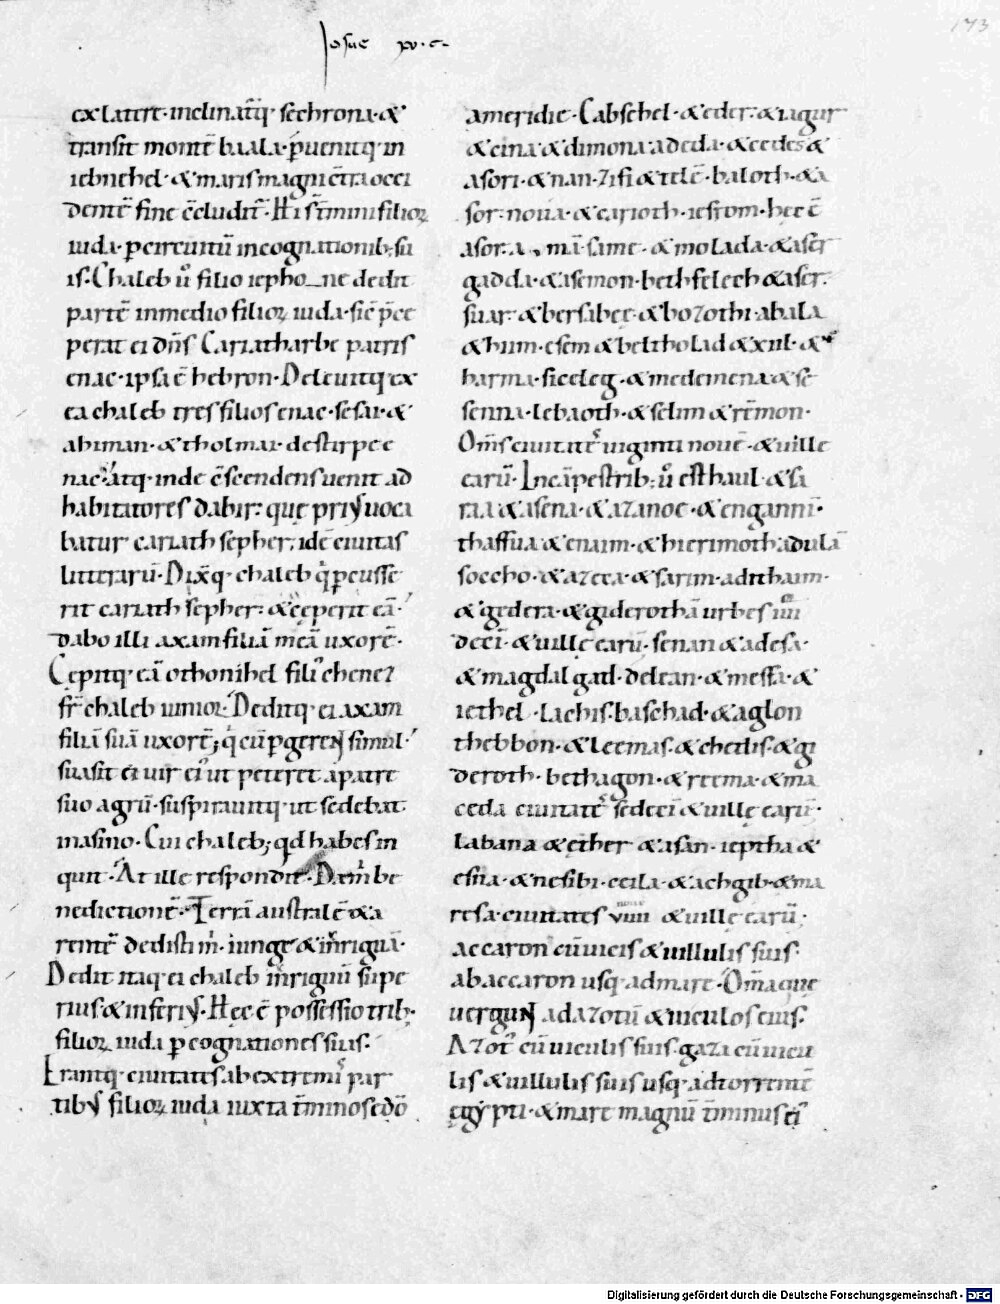 Josue xv. c.
173
ex latere· inclinat̄q· sechrona· &
transit montē baala· p̱uenitq· in
iebnehel· & maris magni c̄tra occi
dentē fine c̄cludit̄· Hi st̄ t̄mini filioꝝ
iuda· p̱ circuitū in cognationib; su
is. Chaleb ū filio iepho_ne dedit
partē in medio filioꝝ iuda· sic̄ p̄ce
perat ei dn̄s Cariatharbe patris
enac· ipsa ē hebron· Deleuitq· ex
ea chaleb tres filios enac· sesai· &
ahiman· & tholmai· de stirpe e
nac· atq· inde c̄scendens uenit ad
habitatores dabir· que pri9 uoca
batur cariath sepher· idē ciuitas
litterarū· Dix̄q· chaleb q̄ p̱cusse
rit cariath sepher· & ceperit eā·
dabo illi axam filiā meā uxorē·
Cepitq· eā othonihel fili9 chenez
fr̄ chaleb iunior· Deditq· ei axam
filiā suā uxorē; q̄ cū p̱geren̄t simul·
suasit ei uir ei9 ut peteret a patre
suo agrū· suspirauitq· ut sedebat
in asino· Cui chaleb; qd habes in
quit· At ille respondit· Da m̄ be
nedictionē· Terrā australē & a
rentē dedisti m̄· iunge & īriguā·
Dedit itaq· ei chaleb īriguū supe
rius & inferi9· Hec ē possessio trib;
filioꝝ iuda p̱ cognationes suas·
Erantq· ciuitates ab extremis par
tib9 filioꝝ iuda iuxta t̄minos edō
a meridie· Cabsehel· & eder· & iagur
& cina & dimona adeda· & cedes &
asori· & nan· zifi & telē· baloth· & a
sor· noua· & carioth· iesrom· hec ē
asor· a mā· same· & molada· & aser
gadda· & asemon· bethfelech & aser
sual· & bersabee· & bozothi· abala
& hiim· esem & beltholad & xiil· &
harma· siceleg· & medemena & se
senna· lebaoth· & selim & rēmon·
Om̄s ciuitates uiginti nouē· & uille
earū· In cāpestrib; ū esthaul· & sa
raa & asena· & azanoe· & engannī·
thaffua & enaim· & hierimoth adulā
soccho· & azeca· & sarim· adithaim·
& gedera· & giderothā urbes iiii
decī· & uille earū· senan & adesa·
& magdal gad· delean· & messa· &
iethel· lachis· baschad· & aglon
thebbon· & leemas· & chetlis· & gi
deroth· bethagon· & reema· & ma
ceda ciuitates sedecī & uille earū·
labana & ether & asan· ieptha &
esna· & nesibi· ceila· & achgib· & ma
resa· ciuitates viiii & uille earū·
accaron cū uicis & uillulis suis·
ab accaron usq· ad mare· Om̄a que
uergunt ad azotū & uiculos eius·
Azot9 cū uiculis suis· gaza cū uicu
lis & uillulis suis usq· ad torrentē
egypti· & mare magnū t̄minus ei9
Digitalisierung gefördert durch die Deutsche Forschungsgemeinschaft - DFG